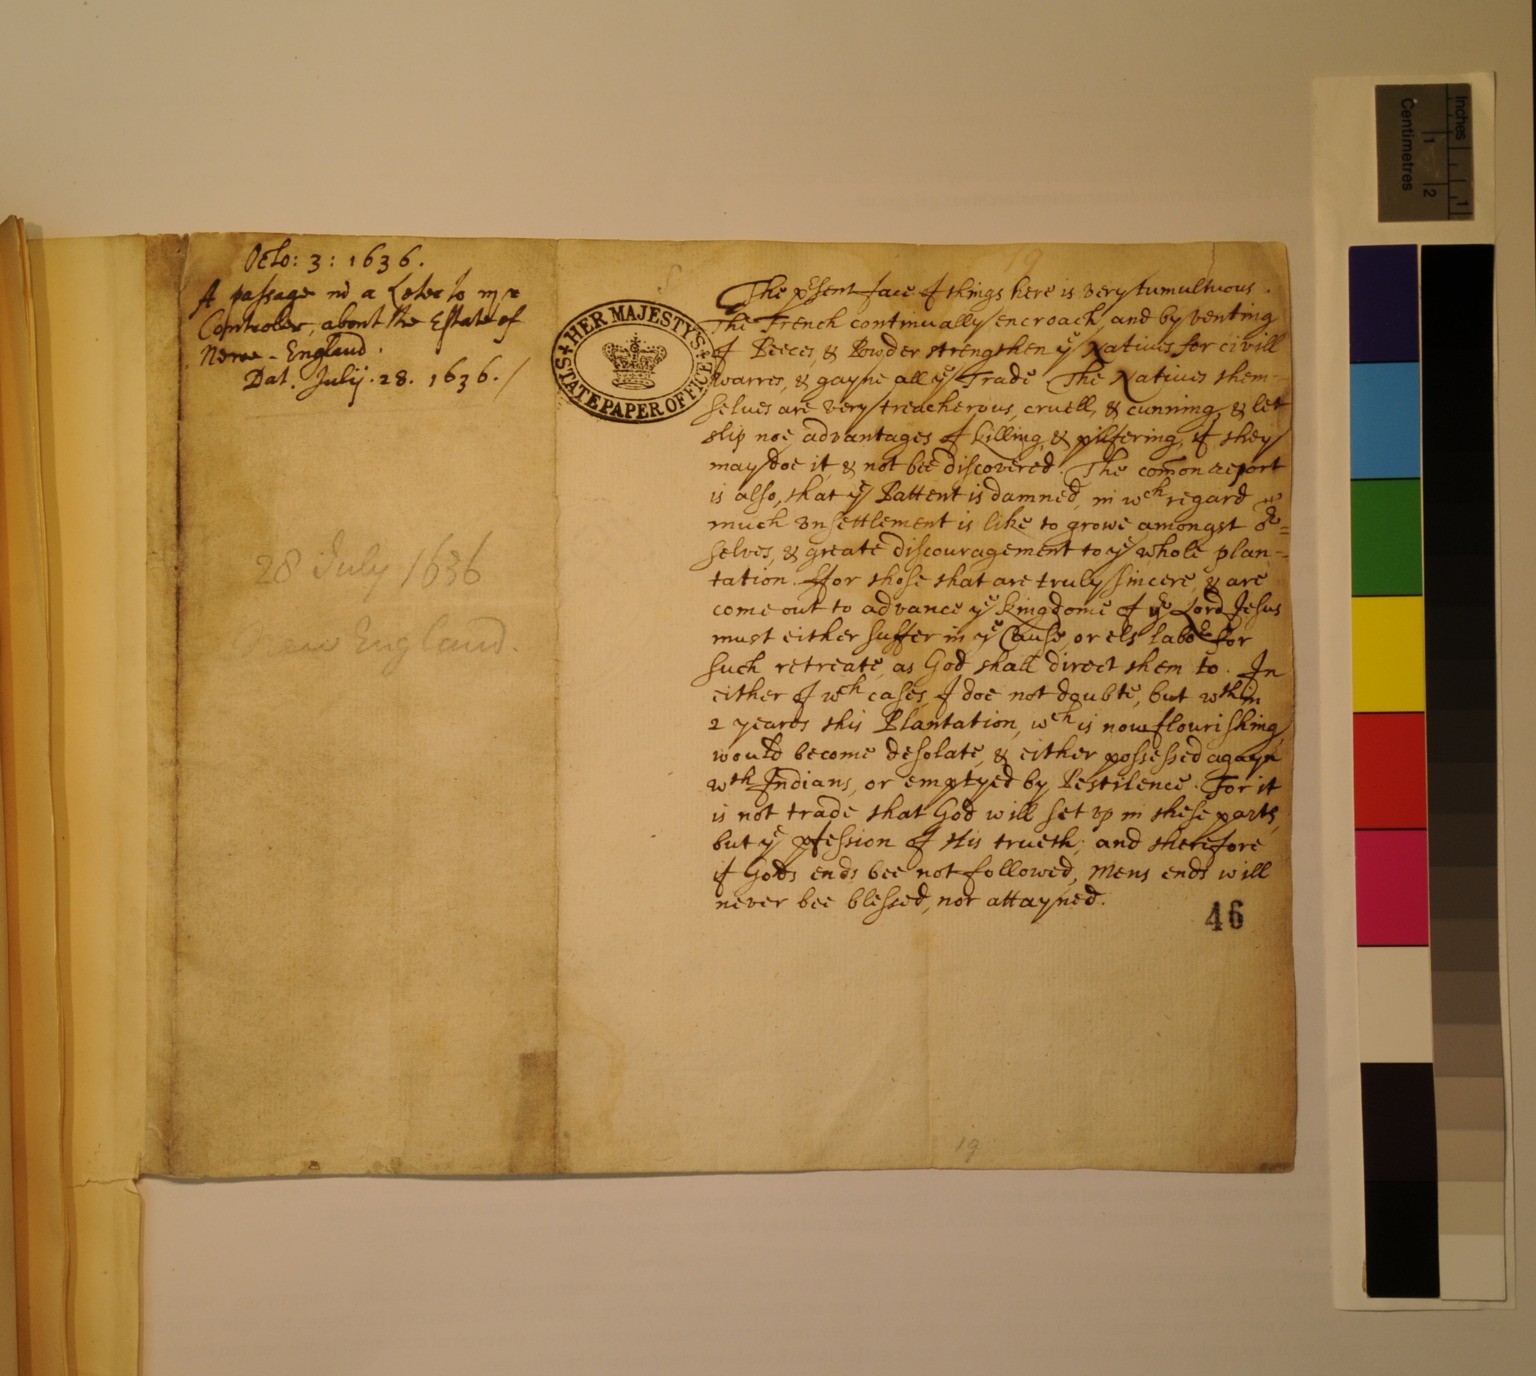 Octo: 3: 1636.
A passage in a Letter to mr
Controler, about the Estate of
Newe-England.
Dat. Julij. 28. 1636./
28 July 1636
New England.
HER MAJESTY'S
STATE PAPER OFFICE
19
The psent face of things here is very tumultuous.
The French continually encroach, and by venting
of Peeces, & Powder strengthen ye Natives for civill
warres, & gayne all ye Trade. The Natives them-
selves are very treacherous, cruell, & cunning, & let
slip noe advantages of killing, & pilfering, if they
may doe it, & not bee discovered. The comon report
is also, that ye Pattent is damned, in wch regard
much vnsettlement is like to growe amongst or=
selves, & greate discouragement to ye whole plan-
tation. ffor those that are truly sincere, & are
come out to advance ye kingdome of ye Lord Jesus
must either suffer in ye Cause, or els labor for
such retreate, as God shall direct them to. In
either of wch cases, I doe not doubte, but wthin
2 yeares this Plantation, wch is now flourishing,
would become desolate, & either possessed agayn
wth Indians, or emptyed by Pestilence. For it
is not trade that God will set vp in these parts,
but ye pfession of His trueth; and therefore
if Gods ends bee not followed, mens ends will
never bee blessed, nor attayned.
46
19
Inches
1
Centimetres
1
2